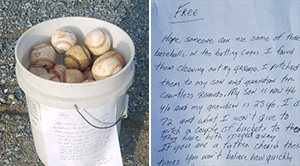 Free
Hope someone can use some of these
baseballs in the batting cages. I found
them cleaning out my garage. I pitched
them to my son and grandson for
countless rounds. My son is now
46 and my grandson is 23. I am
72 and what I won't give to
pitch a couple of buckets to them.
They have both moved away.
If you are a father cherish these
times. You won't believe how quickly